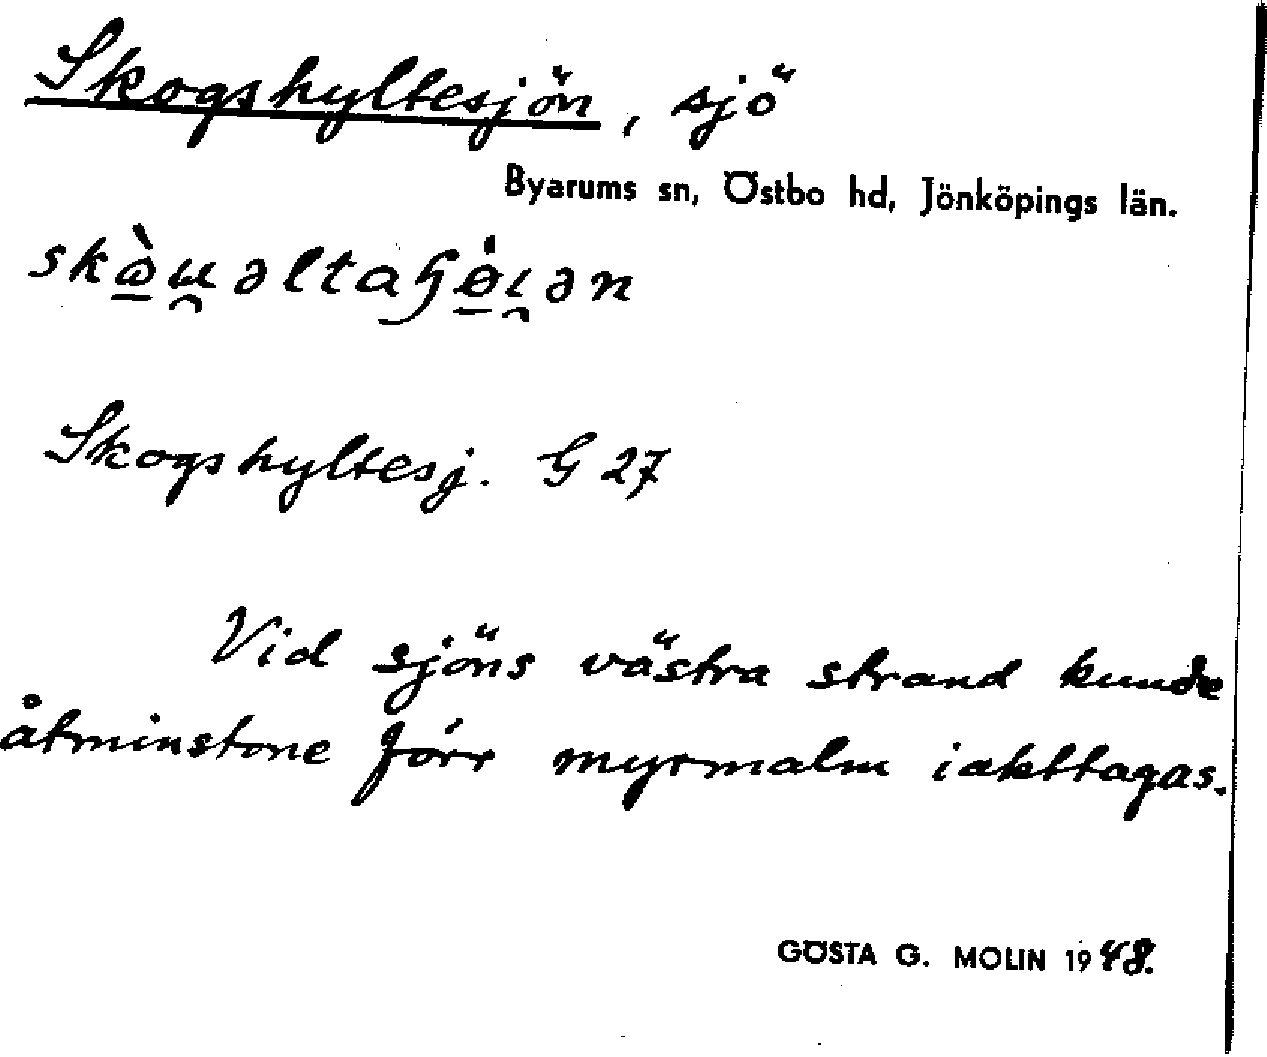 Skogshyltesjön, sjö
Byarums sn, Östbo hd, Jönköpings län.
skὼ̲u̯əltaɧǿ̲i̯ən
Skogshyltesj. G 27
Vid sjöns västra strand kunde
åtminstone förr myrmalm iakttagas.
GÖSTA G. MOLIN 1948.